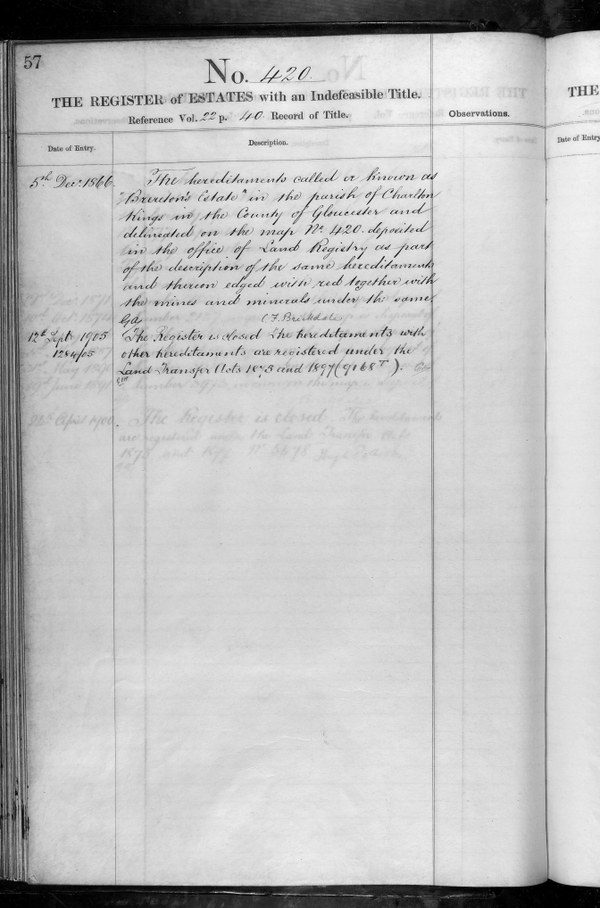 57
No. 420.
THE REGISTER of ESTATES with an Indefeasible Title.
Reference Vol. 22 p. 40 Record of Title.
Observations.
Date of Entry.
Description.
5th Decr. 1866
The hereditaments called or known as
"Brereton's Estate" in the parish of Charlton
Kings in the County of Gloucester and
delineated on the map No 420 deposited
in the office of Land Registry as part
of the description of the same hereditaments
and thereon edged with red together with
the mines and minerals under the same
12th Septr 1905
The Register is closed The hereditaments with
other hereditaments are registered under the
Land Transfer Acts 1875 and 1897 (9168 T).
The Register is closed The hereditaments
are registered under the Land Transfer Acts
1875 and 1897
THE
Date of Entry